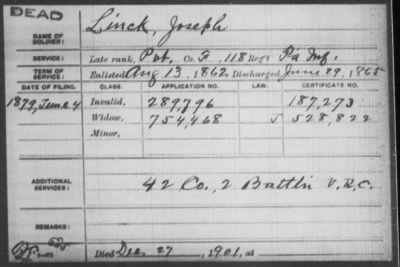 DEAD
NAME OF SOLDIER: Linck, Joseph
SERVICE: Late rank, Pvt, Co. F, 118 Reg't Pa Inf.
TERM OF SERVICE: Enlisted Aug 13, 1862, Discharged June 29, 1865
DATE OF FILING. CLASS. APPLICATION NO. LAW. CERTIFICATE NO.
1879, June 4 Invalid, 289,796 187,273
Widow, 754,468 528,822
Minor,
ADDITIONAL SERVICES: 42 Co., 2 Battl'n V.R.C.
REMARKS:
Died Dec 27, 1901, at